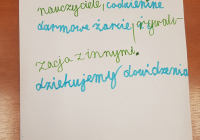 nauczyciele, codzienine
darmowe żarcie, grywali-
zacja z innymi.
dziękujemy dowidzenia